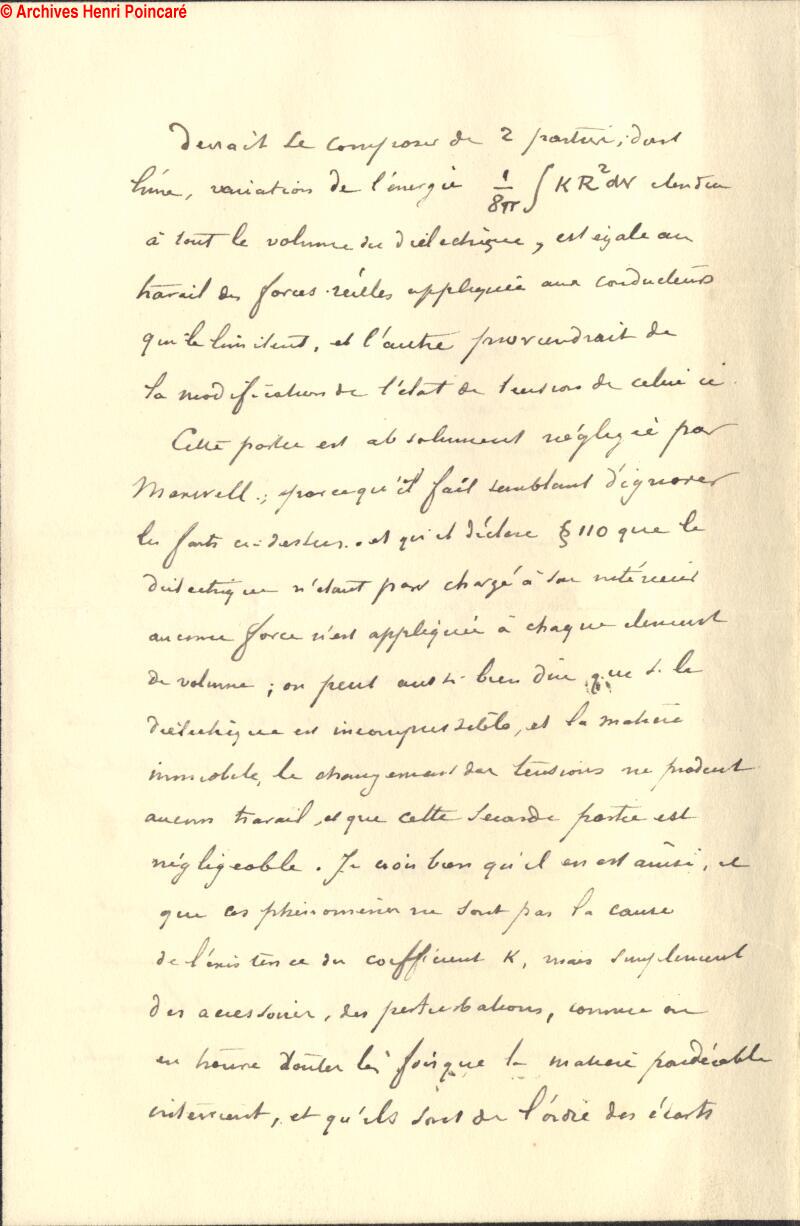 © Archives Henri Poincaré
devrait se composer de 2 parties, dont
l'une, variation de l'énergie 1/8π ∫ K R² dv étendue
à tout le volume du diélectrique, est égale au
travail des forces réelles appliquées aux conducteurs
qui le limitent, et l'autre proviendrait de
la modification de l'état de tension de celui ci.
Cette partie est absolument négligée par
Maxwell, parcequ'il fait semblant d'ignorer
les faits ci-dessus. et qu'il déclare § 110 que le
diélectrique n'étant pas chargé à son intérieur
aucune force n'est appliquée à chaque élément
de volume ; on peut aussi bien dire que si le
diélectrique est incompressible, et la matière
immobile, le changement des tensions ne produit
aucun travail, et que cette seconde partie est
négligeable. Je crois bien qu'il en est ainsi, et
que ces phénomènes ne sont pas la cause
de l'existence du coefficient K, mais simplement
des accessoires, des perturbations, comme on
en trouve toutes les fois que la matière pondérable
intervient, et qu'ils sont de l'ordre des écarts